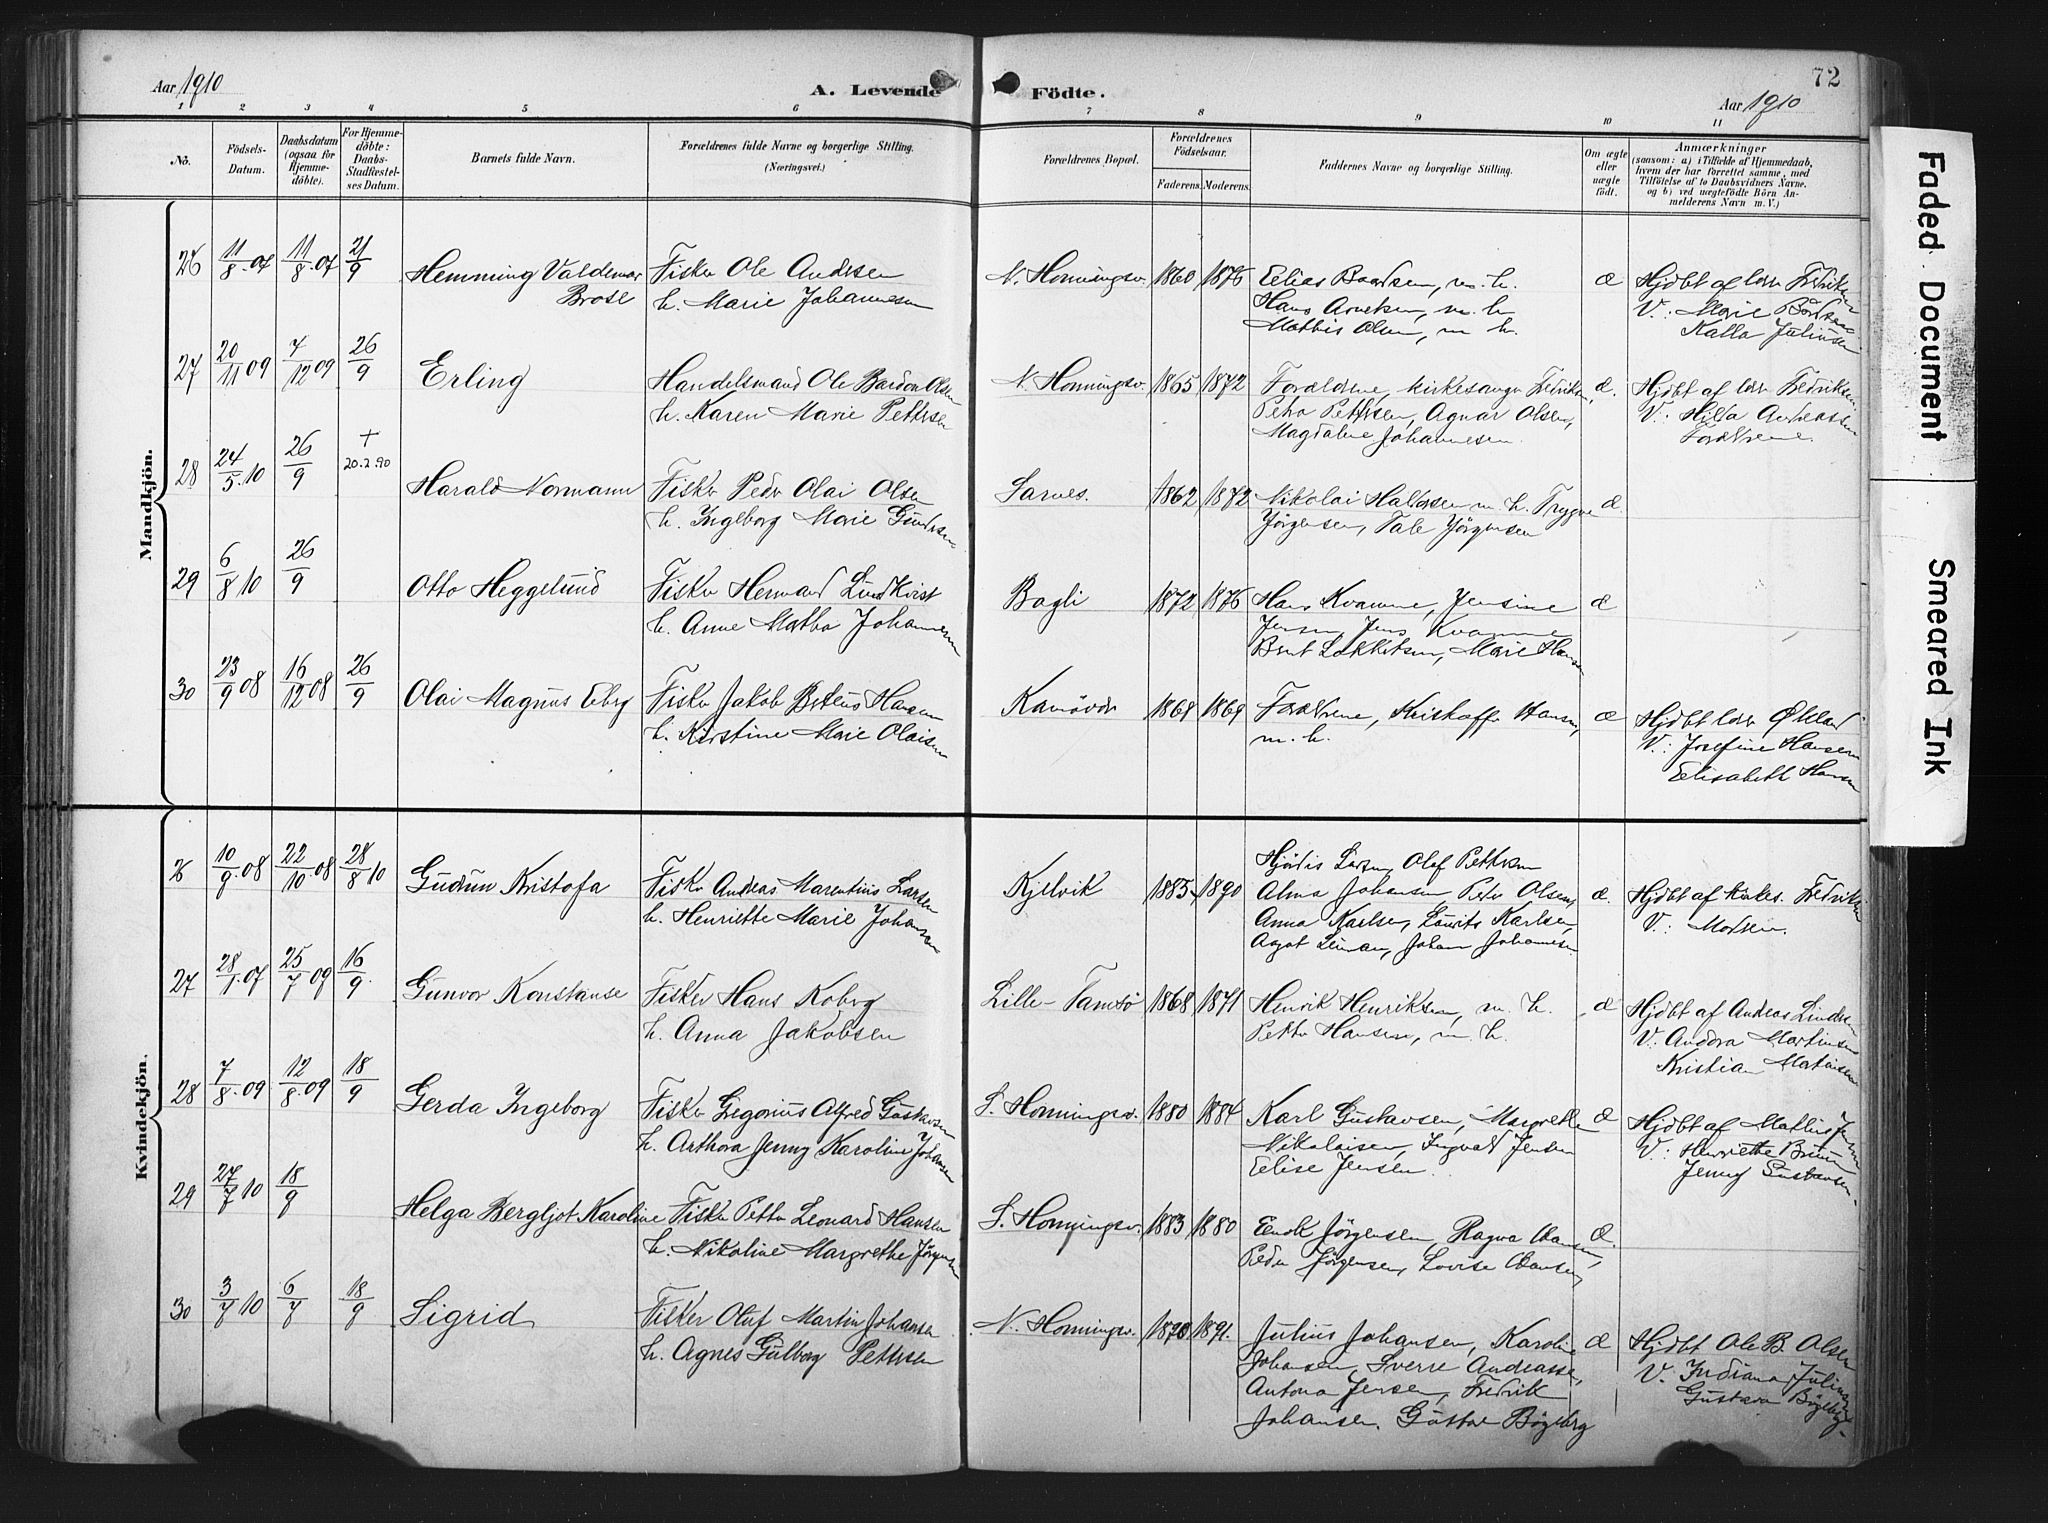 Aar 1910
A. Levende Födte.
72
Aar 1910
1 2 3 4 5 6 7 8 9 10 11
No.
Födsels-Datum.
Daabsdatum (ogsaa for Hjemme-döbte).
For Hjemme-döbte: Daabs-Stadfæstel-ses Datum.
Barnets fulde Navn.
Forældrenes fulde Navne og borgerlige Stilling.
(Næringsvei.)
Forældrenes Bopæl.
Forældrenes Födselsaar.
Faderens. Moderens.
Faddernes Navne og borgerlige Stilling.
Om ægte eller uægte födt.
Anmærkninger
(saasom: a) i Tilfælde af Hjemmedaab,
hvem der har forrettet samme, med
Tilföielse af to Daabsvidners Navne,
og b) ved uægtefödte Börn An-
melderens Navn m. V.)
Mandkjön.
26 11/8 07 11/8 07 21/9 Hemming Valdemar Fisker Ole Andersen N. Honningsv. 1860 1876 Elias Baardsen, m. h. æ Hjdbt af lærer Fredriksen
Brose h. Marie Johannesen Hans Arnetsen, m. h. V: Marie Bårdsen
Mathis Olsen, m. h. Kalla Juliusen
27 20/11 09 7/12 09 26/9 Erling Handelsmand Ole Bardon Olsen N. Honningsv. 1865 1872 Forældrene, kirkesanger Fredriksen, æ. Hjdbt af lærer Fredriksen
h. Karen Marie Pettersen Petra Pettersen, Agnar Olsen, V: Hilda Andreassen
Magdalene Johannesen. Forældrene.
28 24/5 10 26/9 + 20.2.90 Harald Normann Fisker Peder Olai Olsen Sarnes. 1862 1872 Nikolai Haldorsen m. h. Trygve æ.
h. Ingeborg Marie Gundersen Jörgensen, Tale Jörgensen
29 6/8 10 26/9 Otto Heggelund Fisker Herman Lindkvist Bagli 1872 1876 Hans Kvamme, Jensine æ
h. Anne Matha Johannesen Jensen, Jens Kvamme
Marie Hansen
30 23/9 08 16/12 08 26/9 Olai Magnus Eberg Fisker Jakob Hansen Kamöver 1868 1869 Forældrene, Kristoffer Hansen, æ Hjdbt lærer Økland
h. Kirstine Marie Olaisen m. h. V: Josefine Hansen
Elisabeth Hansen
Kvindekjön.
26 10/9 08 22/10 08 28/8 10 Gudrun Kristofa Fisker Andreas Marentius Larsen Kjelvik 1885 1890 Hjördis Larsen, Olaf Pettersen
h. Henriette Marie Johansen Alma Johansen, Peder Olsen, æ. Hjdbt af kirkes. Fredriksen
Anna Karlsen, Laurits Karlsen, V: Moderen.
Johan Johannesen
27 28/1 07 25/7 09 16/9 Gunvor Konstanse Fisker Hans Koberg Lille-Tamsö 1868 1871 Henrik Henriksen, m. h. æ Hjdbt af Andreas Lindersen
h. Anna Jakobsen Petter Hansen, m. h. V. Andora Martinsen
Kristian Mathisen
28 7/8 09 12/8 09 18/9 Gerda Ingeborg Fisker Gregorius Alfred Gustavsen S. Honningsv. 1880 1884 Karl Gustavsen, Margrethe æ Hjdbt af Mathis Jensen
h. Arthora Jenny Karoline Johansen Nikolaisen, Ingvald Jensen V: Henriette Bruun
Elise Jensen. Jenny Gustavsen.
29 27/7 10 18/9 Helga Bergljot Karoline Fisker Petter Leonard Hansen S. Honningsv. 1883 1880 Enok Jörgensen, Ragna Hansen, æ.
h. Nikoline Margrethe Jörgensen Peder Jörgensen, Lovise Hansen,
30 3/7 10 6/7 18/9 Sigrid Fisker Oluf Martin Johansen N. Honningsv. 1890. 1891. Julius Johansen, Karoline æ Hjdbt Ole B. Olsen
h. Agnes Gulborg Pettersen Johansen, Sverre Andreassen, V. Indiana Juliusen
Antona Jensen, Fredrik Gustava Bögeberg.
Johansen. Gustava Bögeberg
Faded Document
Smeared Ink